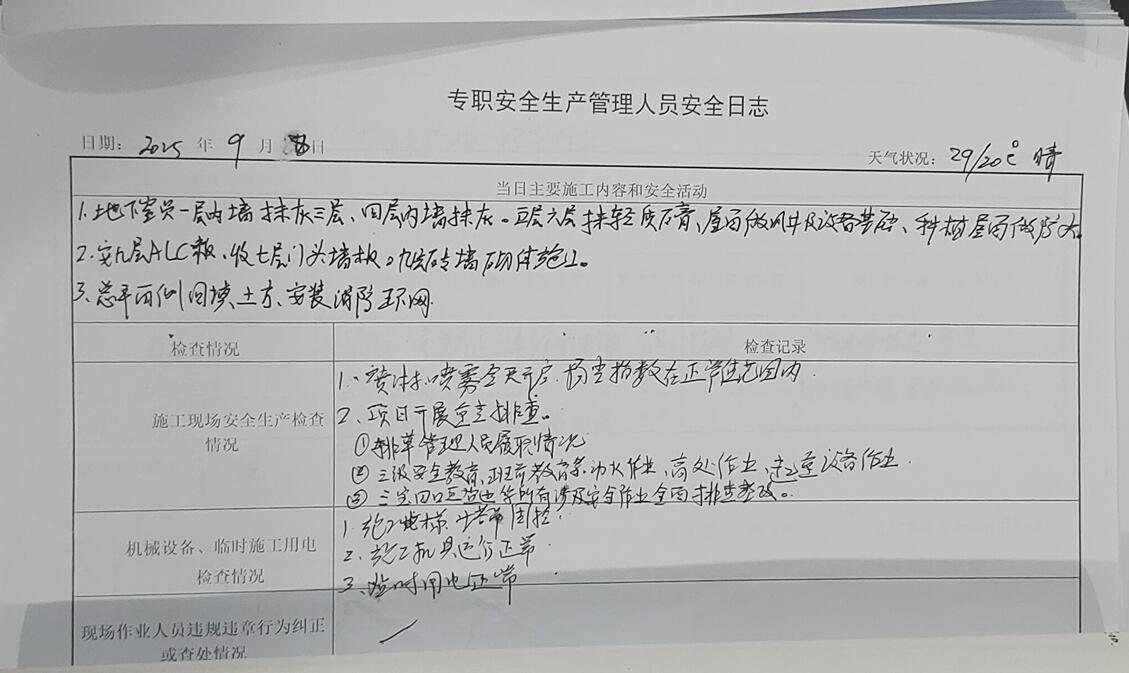 专职安全生产管理人员安全日志
日期: 2025 年 9 月 日
天气状况: 29/20℃ 晴
当日主要施工内容和安全活动
1.地下室负一层内墙抹灰三层、四层内墙抹灰。五层六层抹轻质石膏、屋面做风井及设备基础、种植屋面做防水。
2.安九层ALC板、收七层门头墙板。九层砖墙砌体施工。
3.总平西侧回填土方、安装消防环网.
检查情况
检查记录
施工现场安全生产检查
情况
1、喷淋喷雾全天开启.扬尘指数在正常值范围内.
2、项目开展 排查。
① 管理人员履职情况
② 三级安全教育、班前教育 动火作业,高处作业,起重设备作业.
③ 三宝四口五临边等所有涉及安全作业全面排查整改。
机械设备、临时施工用电
检查情况
1.施工电梯
2.施工机具运行正常
3、临时用电正常
现场作业人员违规违章行为纠正
或查处情况